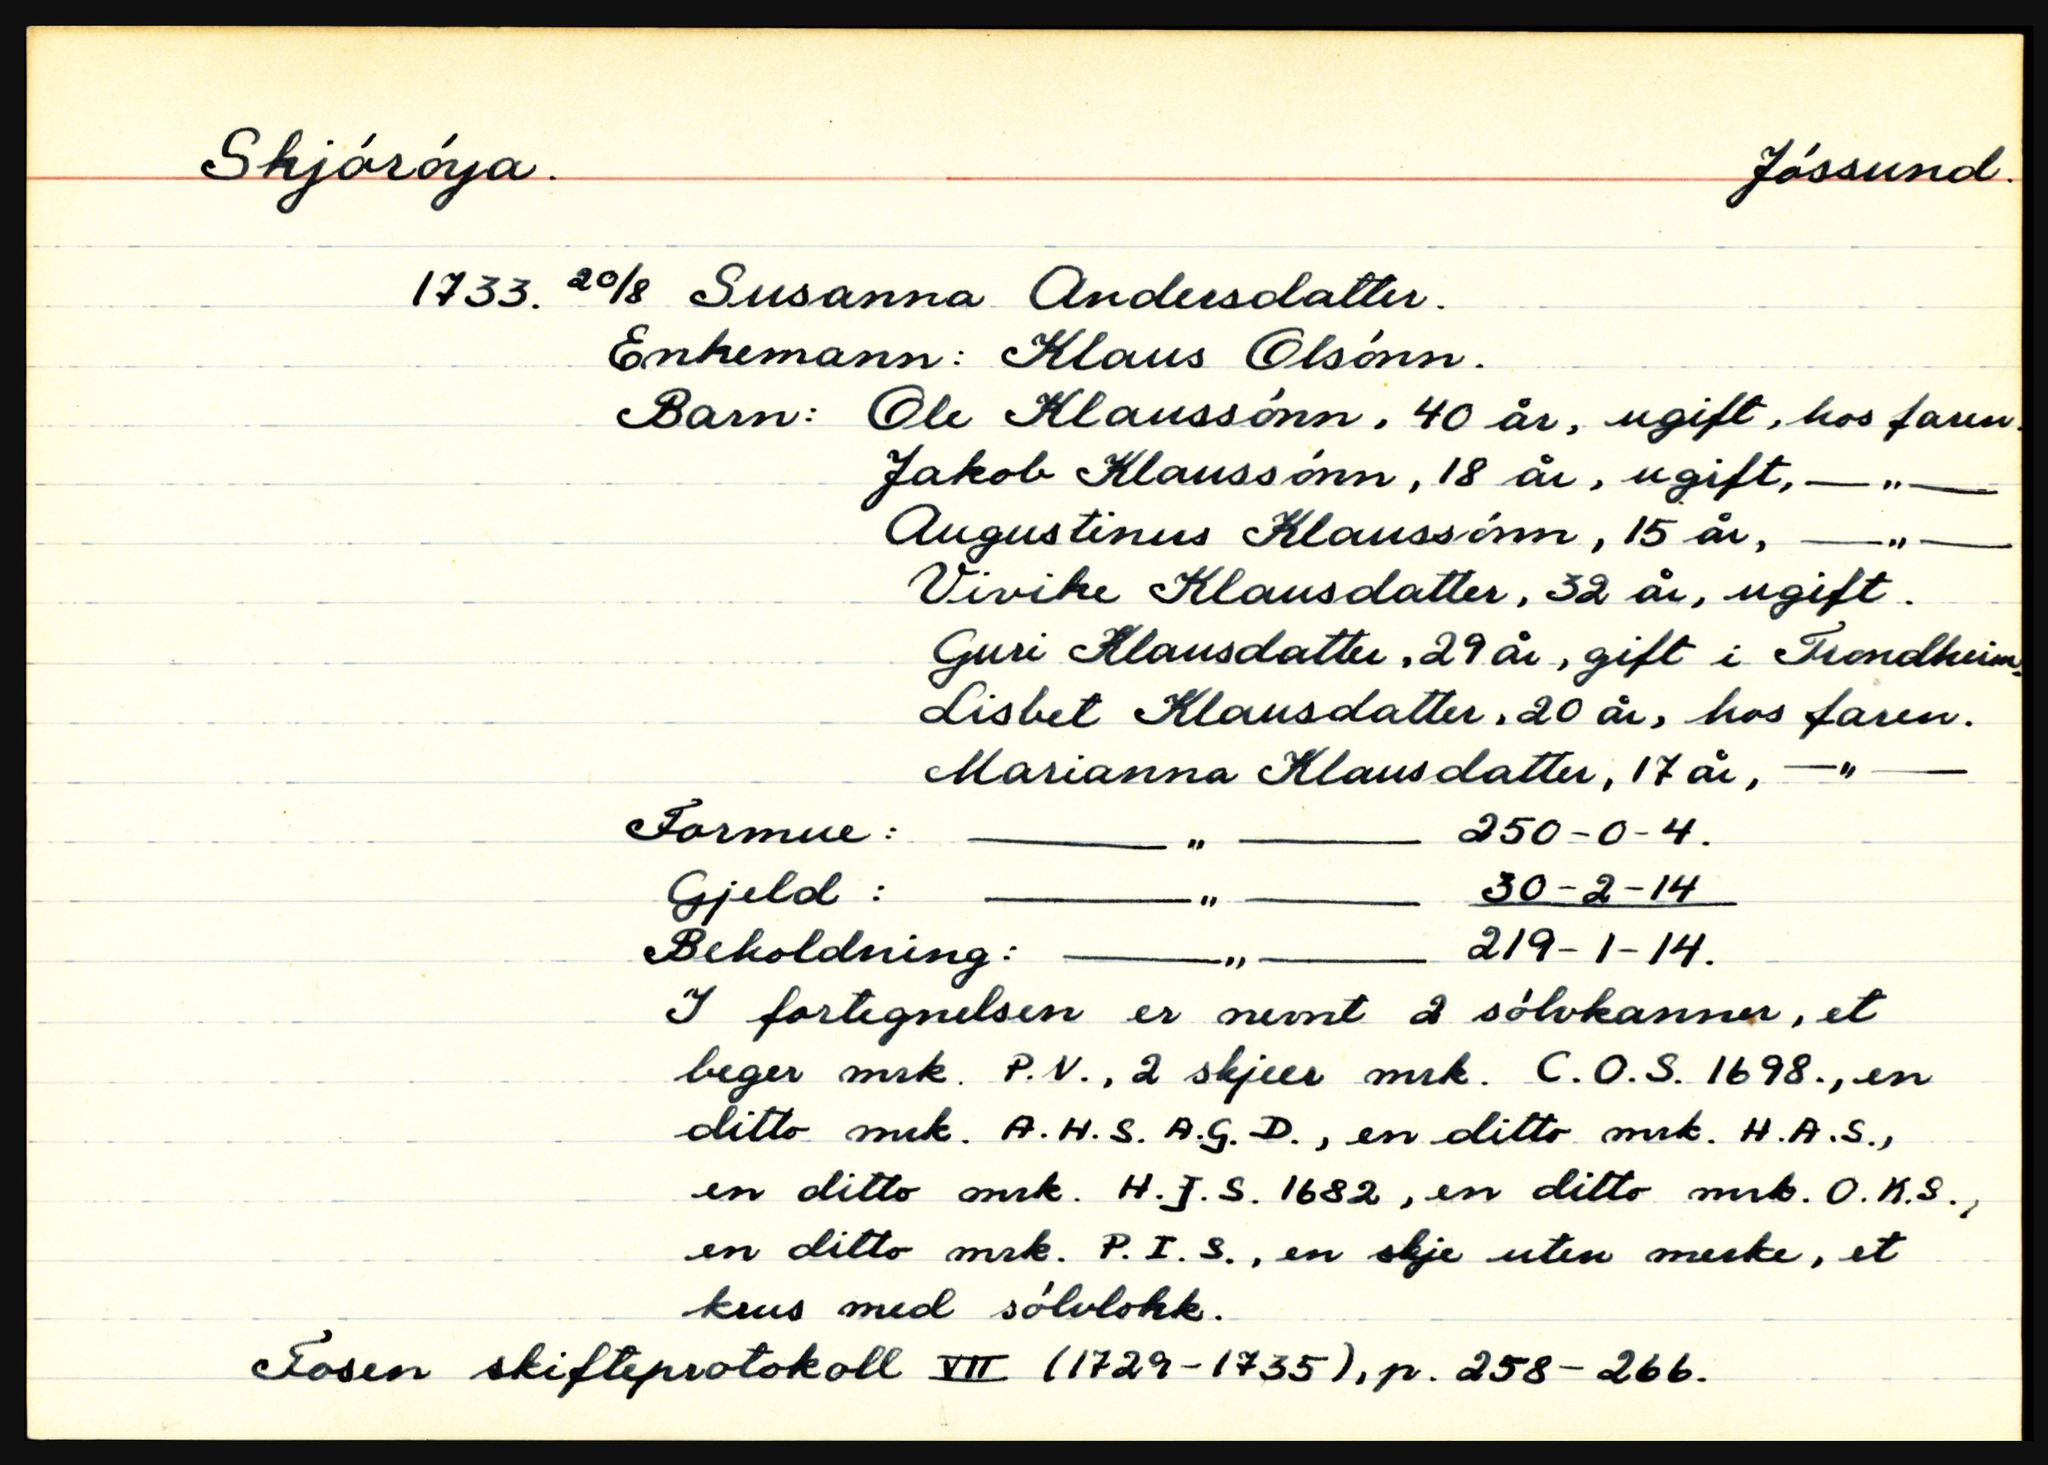 Skjóróya. Jóssund.
1733. 20/8 Susanna Andersdatter.
Enkemann: Klaus Olsónn.
Barn: Ole Klaussónn, 40 år, ugift, hos faren.
Jakob Klaussónn, 18 år, ugift, —„—
Augustinus Klaussónn, 15 år, —„—
Vivike Klausdatter, 32 år, ugift.
Guri Klausdatter, 29 år, gift i Trondheim.
Lisbet Klausdatter, 20 år, hos faren.
Marianna Klausdatter, 17 år, —„—
Formue: —„— 250-0-4.
Gjeld: —„— 30-2-14
Beholdning: —„— 219-1-14.
I fortegnelsen er nevnt 2 sólvkanner, et
beger mrk. P.V., 2 skjeer mrk. C.O.S. 1698., en
ditto mrk. A.H.S. A.G.D., en ditto mrk. H.A.S.,
en ditto mrk. H.J.S. 1682, en ditto mrk. O.K.S.,
en ditto mrk. P.I.S., en skje uten merke, et
krus med sólvlokk.
Fosen skifteprotokoll VII (1729-1735), p. 258-266.